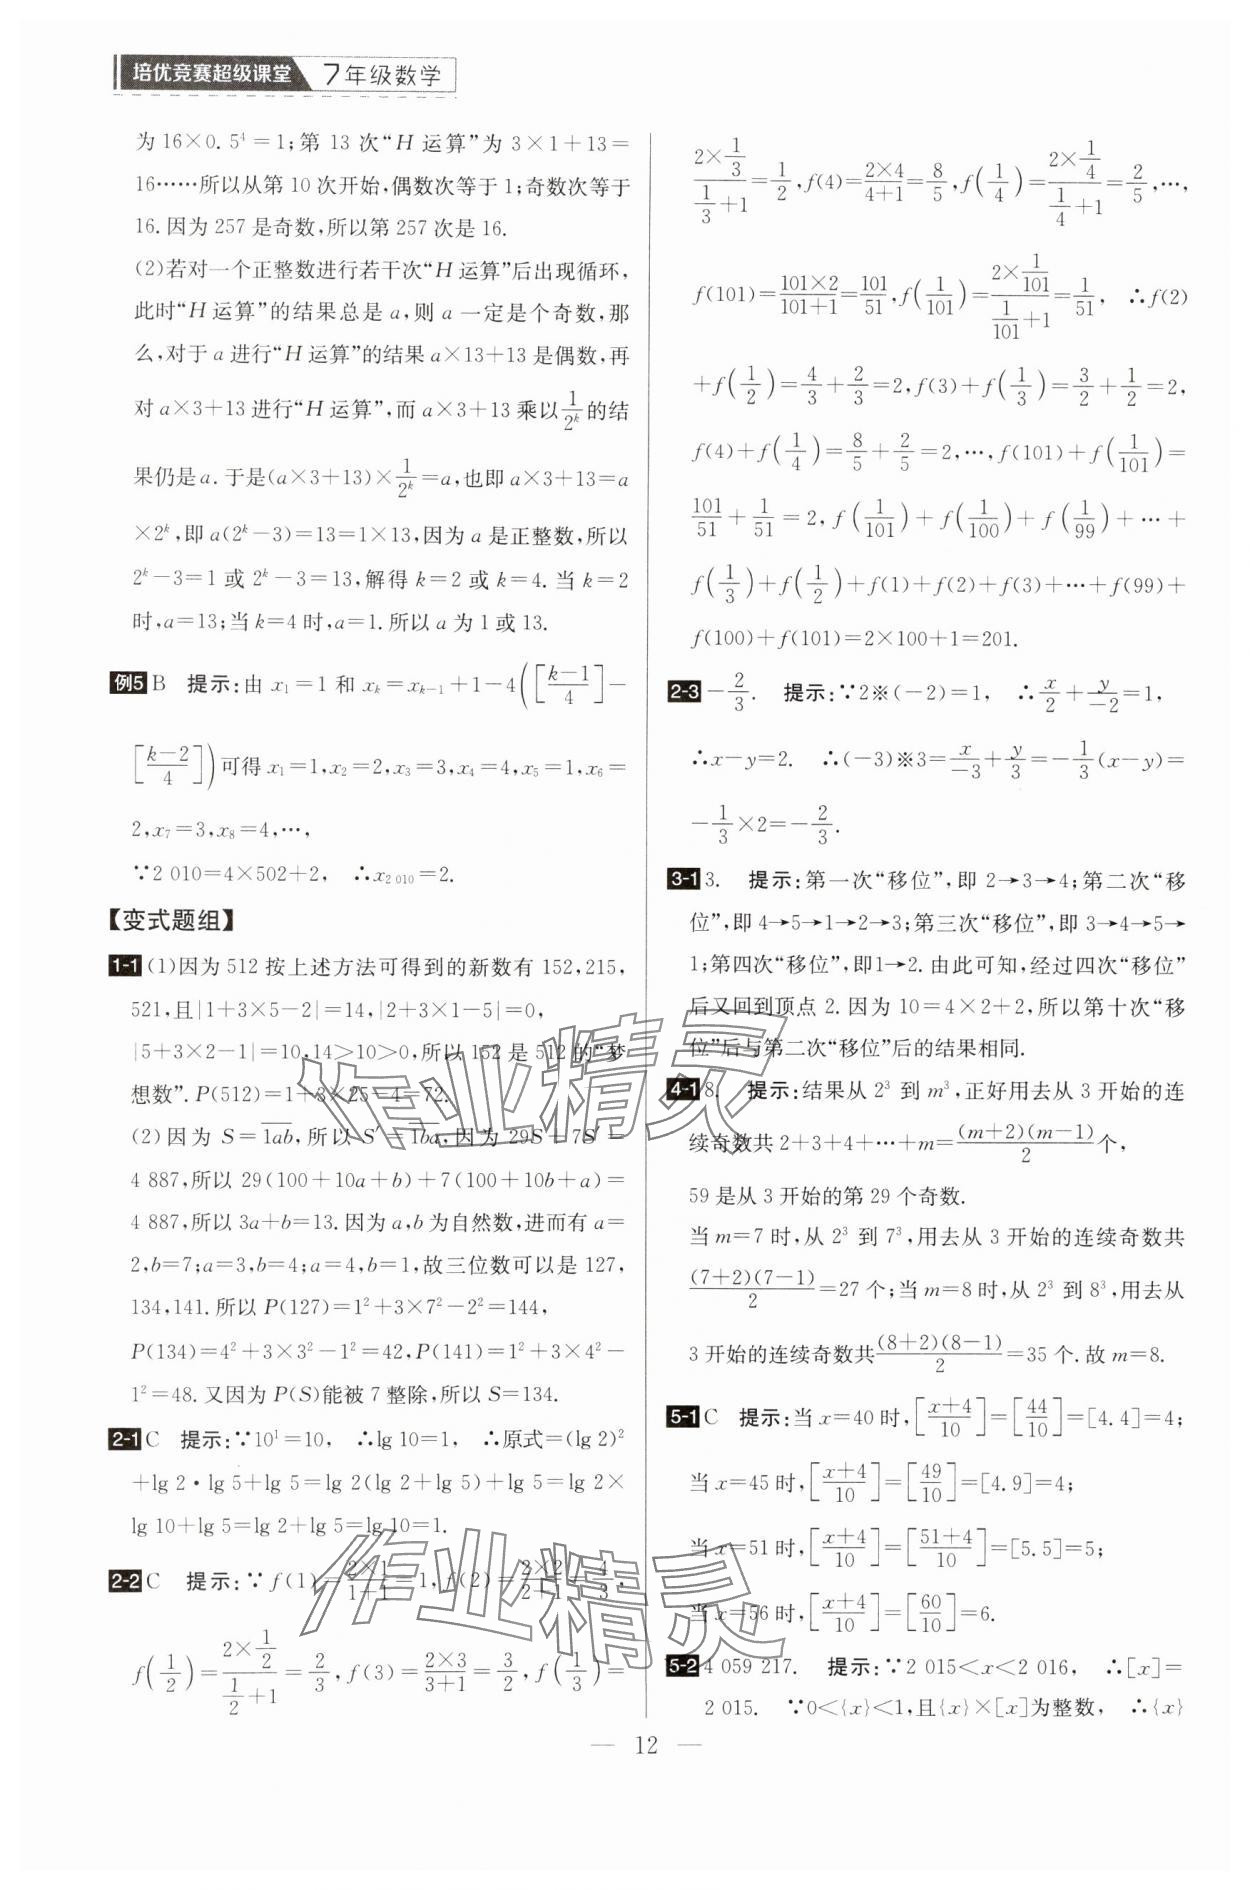 培优竞赛超级课堂 7年级数学
为 16×0.5⁴=1;第 13 次“H 运算”为 3×1+13=
16……所以从第 10 次开始,偶数次等于 1;奇数次等于
16.因为 257 是奇数,所以第 257 次是 16.
(2)若对一个正整数进行若干次“H 运算”后出现循环,
此时“H 运算”的结果总是 a,则 a 一定是个奇数,那
么,对于 a 进行“H 运算”的结果 a×13+13 是偶数,再
对 a×3+13 进行“H 运算”,而 a×3+13 乘以 1/2ᵏ 的结
果仍是 a.于是(a×3+13)×1/2ᵏ=a,也即 a×3+13=a
×2ᵏ,即 a(2ᵏ-3)=13=1×13,因为 a 是正整数,所以
2ᵏ-3=1 或 2ᵏ-3=13,解得 k=2 或 k=4.当 k=2
时,a=13;当 k=4 时,a=1.所以 a 为 1 或 13.
例5 B 提示:由 x₁=1 和 xₖ=xₖ₋₁+1-4([(k-1)/4]-
[(k-2)/4])可得 x₁=1,x₂=2,x₃=3,x₄=4,x₅=1,x₆=
2,x₇=3,x₈=4,…,
∵2 010=4×502+2, ∴x₂ ₀₁₀=2.
【变式题组】
1-1 (1)因为 512 按上述方法可得到的新数有 152,215,
521,且|1+3×5-2|=14,|2+3×1-5|=0,
|5+3×2-1|=10.14>10>0,所以 152 是 512 的“梦
想数”.P(512)=1+3×25-4=72.
(2)因为 S=1ab,所以 S′=1ba,因为 29S+7S′=
4 887,所以 29(100+10a+b)+7(100+10b+a)=
4 887,所以 3a+b=13.因为 a,b 为自然数,进而有 a=
2,b=7;a=3,b=4;a=4,b=1,故三位数可以是 127,
134,141.所以 P(127)=1²+3×7²-2²=144,
P(134)=4²+3×3²-1²=42,P(141)=1²+3×4²-
1²=48.又因为 P(S)能被 7 整除,所以 S=134.
2-1 C 提示:∵10¹=10, ∴lg 10=1, ∴原式=(lg 2)²
+lg 2·lg 5+lg 5=lg 2(lg 2+lg 5)+lg 5=lg 2×
lg 10+lg 5=lg 2+lg 5=lg 10=1.
2-2 C 提示:∵f(1)=(2×1)/(1+1)=1,f(2)=(2×2)/(2+1)=4/3,
f(1/2)=(2×1/2)/(1/2+1)=2/3,f(3)=(2×3)/(3+1)=3/2,f(1/3)=
(2×1/3)/(1/3+1)=1/2,f(4)=(2×4)/(4+1)=8/5,f(1/4)=(2×1/4)/(1/4+1)=2/5,…,
f(101)=(101×2)/(101+1)=101/51,f(1/101)=(2×1/101)/(1/101+1)=1/51, ∴f(2)
+f(1/2)=4/3+2/3=2,f(3)+f(1/3)=3/2+1/2=2,
f(4)+f(1/4)=8/5+2/5=2,…,f(101)+f(1/101)=
101/51+1/51=2,f(1/101)+f(1/100)+f(1/99)+…+
f(1/3)+f(1/2)+f(1)+f(2)+f(3)+…+f(99)+
f(100)+f(101)=2×100+1=201.
2-3 -2/3. 提示:∵2※(-2)=1, ∴x/2+y/-2=1,
∴x-y=2. ∴(-3)※3=x/-3+y/3=-1/3(x-y)=
-1/3×2=-2/3.
3-1 3. 提示:第一次“移位”,即 2→3→4;第二次“移
位”,即 4→5→1→2→3;第三次“移位”,即 3→4→5→
1;第四次“移位”,即1→2.由此可知,经过四次“移位”
后又回到顶点 2.因为 10=4×2+2,所以第十次“移
位”后与第二次“移位”后的结果相同.
4-1 8. 提示:结果从 2³ 到 m³,正好用去从 3 开始的连
续奇数共 2+3+4+…+m=(m+2)(m-1)/2个,
59 是从 3 开始的第 29 个奇数.
当 m=7 时,从 2³ 到 7³,用去从 3 开始的连续奇数共
(7+2)(7-1)/2=27 个;当 m=8 时,从 2³ 到 8³,用去从
3 开始的连续奇数共(8+2)(8-1)/2=35 个.故 m=8.
5-1 C 提示:当 x=40 时,[(x+4)/10]=[44/10]=[4.4]=4;
当 x=45 时,[(x+4)/10]=[49/10]=[4.9]=4;
当 x=51 时,[(x+4)/10]=[(51+4)/10]=[5.5]=5;
当 x=56 时,[(x+4)/10]=[60/10]=6.
5-2 4 059 217. 提示:∵2 015<x<2 016, ∴[x]=
2 015. ∵0<{x}<1,且{x}×[x]为整数, ∴{x}
— 12 —
作业精灵
作业精灵